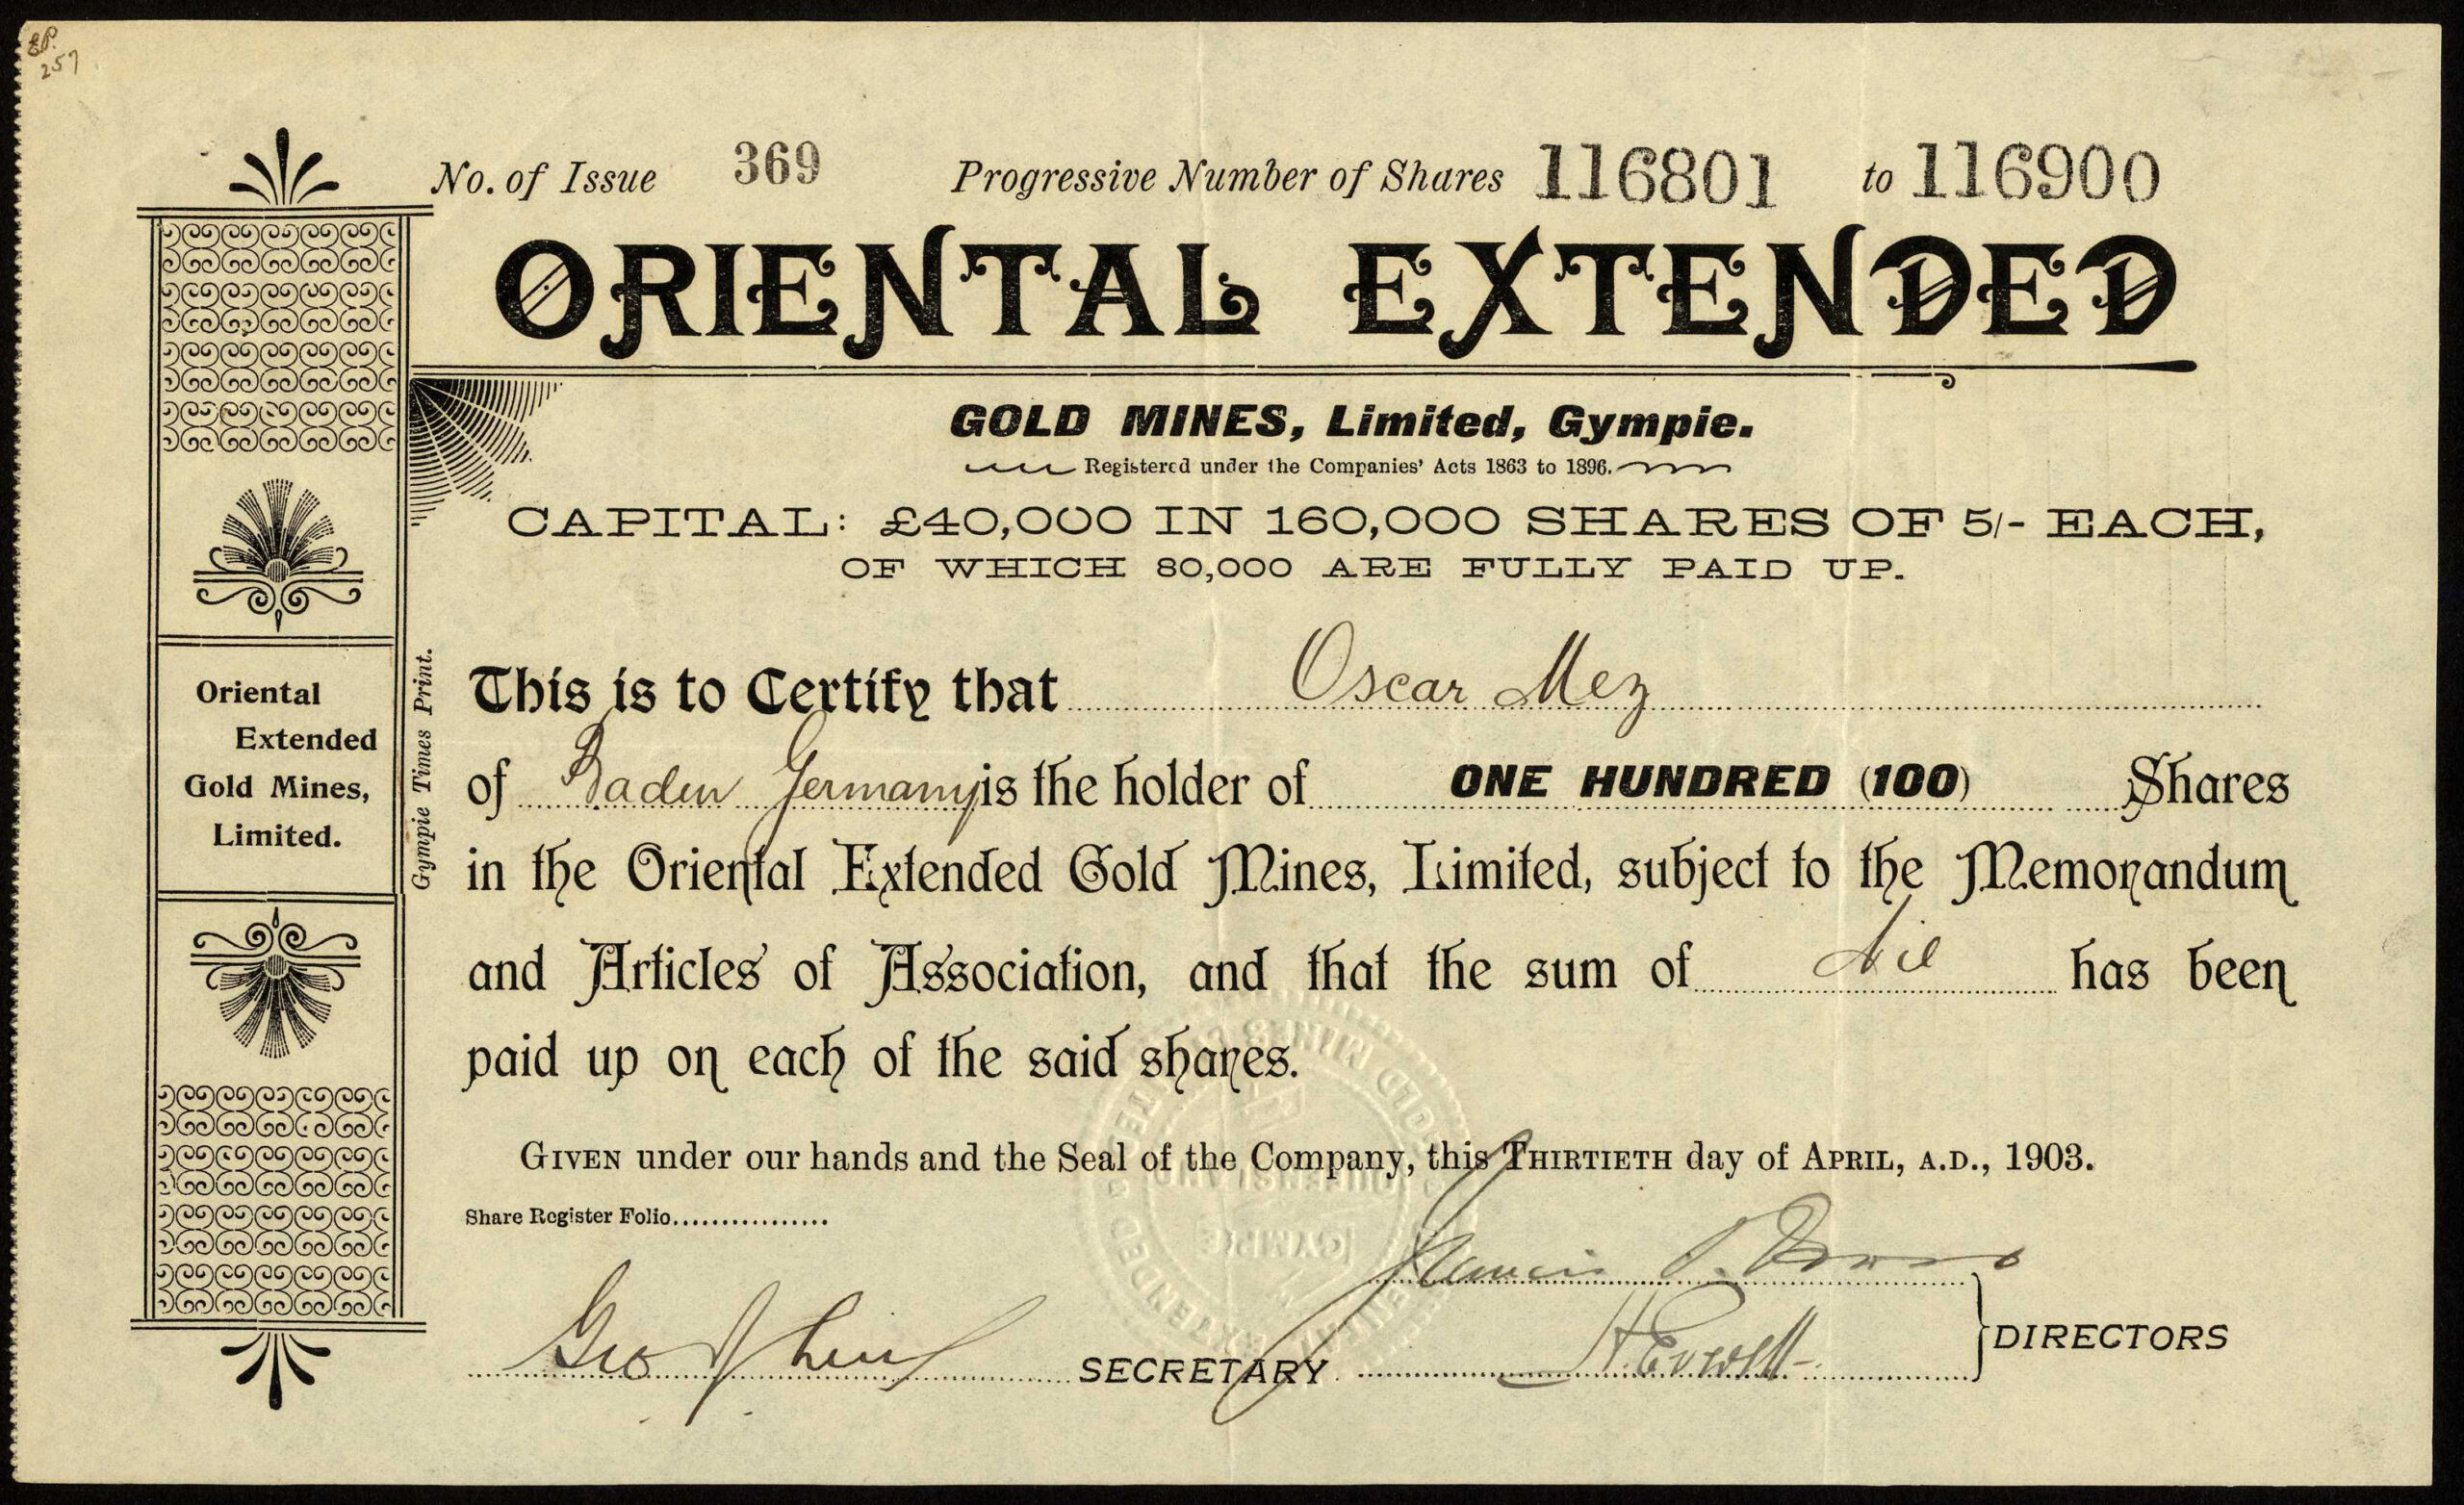 EP.
257
No. of Issue 369 Progressive Number of Shares 116801 to 116900
ORIENTAL EXTENDED
GOLD MINES, Limited, Gympie.
Registered under the Companies' Acts 1863 to 1896.
CAPITAL: £40,000 IN 160,000 SHARES OF 5/- EACH,
OF WHICH 80,000 ARE FULLY PAID UP.
Oriental
Extended
Gold Mines,
Limited.
Gympie Times Print.
This is to Certify that Oscar Mez
of Baden Germany is the holder of ONE HUNDRED (100) Shares
in the Oriental Extended Gold Mines, Limited, subject to the Memorandum
and Articles of Association, and that the sum of Nil has been
paid up on each of the said shares.
GIVEN under our hands and the Seal of the Company, this THIRTIETH day of APRIL, A.D., 1903.
Share Register Folio
Francis
Geo SECRETARY. H. Everett DIRECTORS
GOLD MINES
EXTENDED
QUEENSLAND
GYMPIE